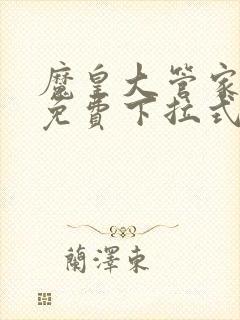 魔皇大管家
免費下拉式
蘭澤東